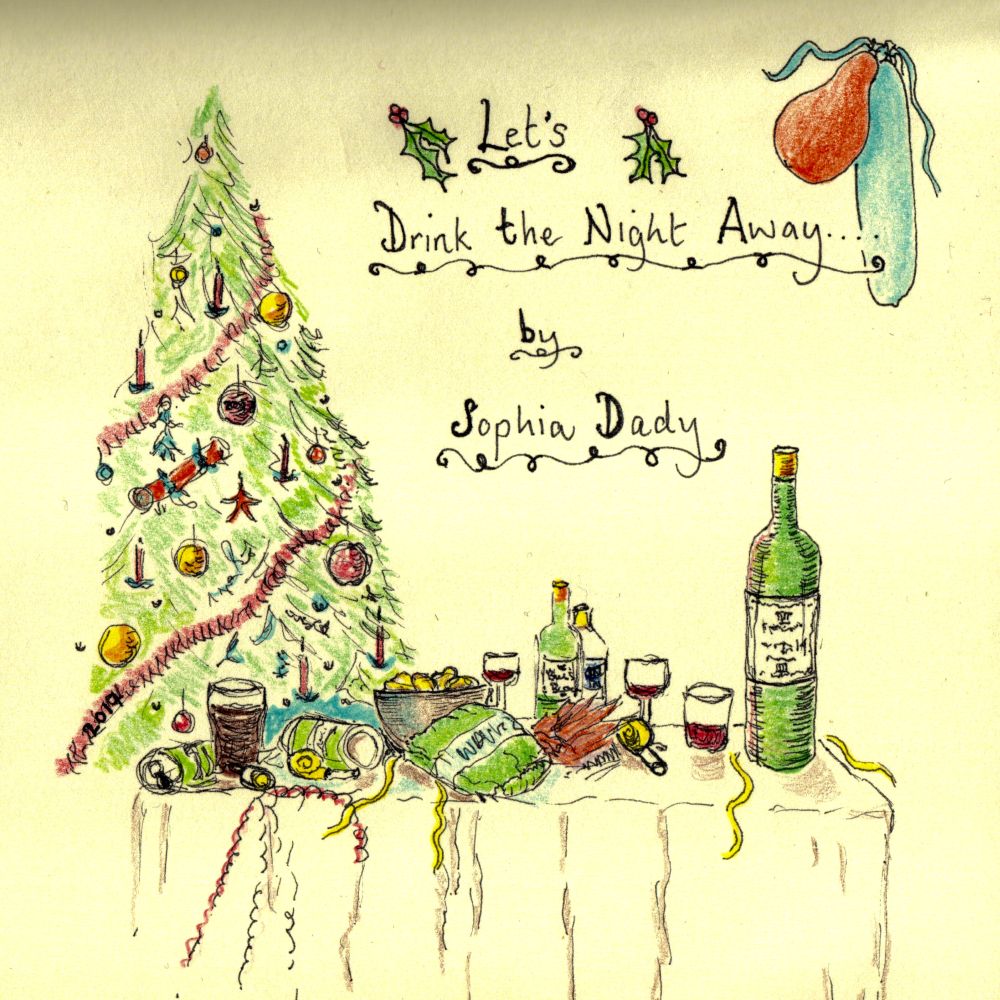 Let's
Drink the Night Away....
by
Sophia Dady
2019